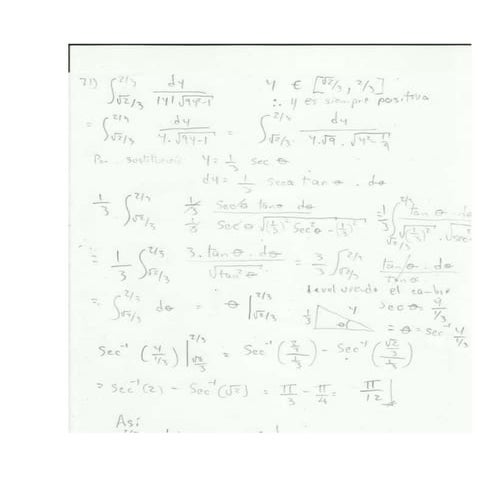 31) ∫_{√2/3}^{2/3} dy / |y|√9y²-1    y ∈ [√2/3, 2/3]
∴ y es siempre positiva
= ∫_{√2/3}^{2/3} dy / y·√9y²-1 = ∫_{√2/3}^{2/3} dy / y·√9·√y²-1/9
Por sustitución y = 1/3 sec θ
dy = 1/3 secθ tanθ · dθ
1/3 ∫_{√2/3}^{2/3} 1/3 secθ tanθ dθ / 1/3 secθ √(1/3)² sec²θ - (1/3)² = 1/3 ∫_{√2/3}^{2/3} tanθ · dθ / √(1/3)² · √sec²
= 1/3 ∫_{√2/3}^{2/3} 3·tanθ·dθ / √tan²θ = 3/3 ∫_{√2/3}^{2/3} tanθ · dθ / tanθ
el cambio
= ∫_{√2/3}^{2/3} dθ = θ |_{√2/3}^{2/3}    1/3  y  θ    secθ = y / 1/3
= θ = sec⁻¹ y / 1/3
sec⁻¹ (y / 1/3) |_{√2/3}^{2/3} = sec⁻¹ (2/3 / 1/3) - sec⁻¹ (√2/3 / 1/3)
= sec⁻¹(2) - sec⁻¹(√2) = π/3 - π/4 = π/12
Así